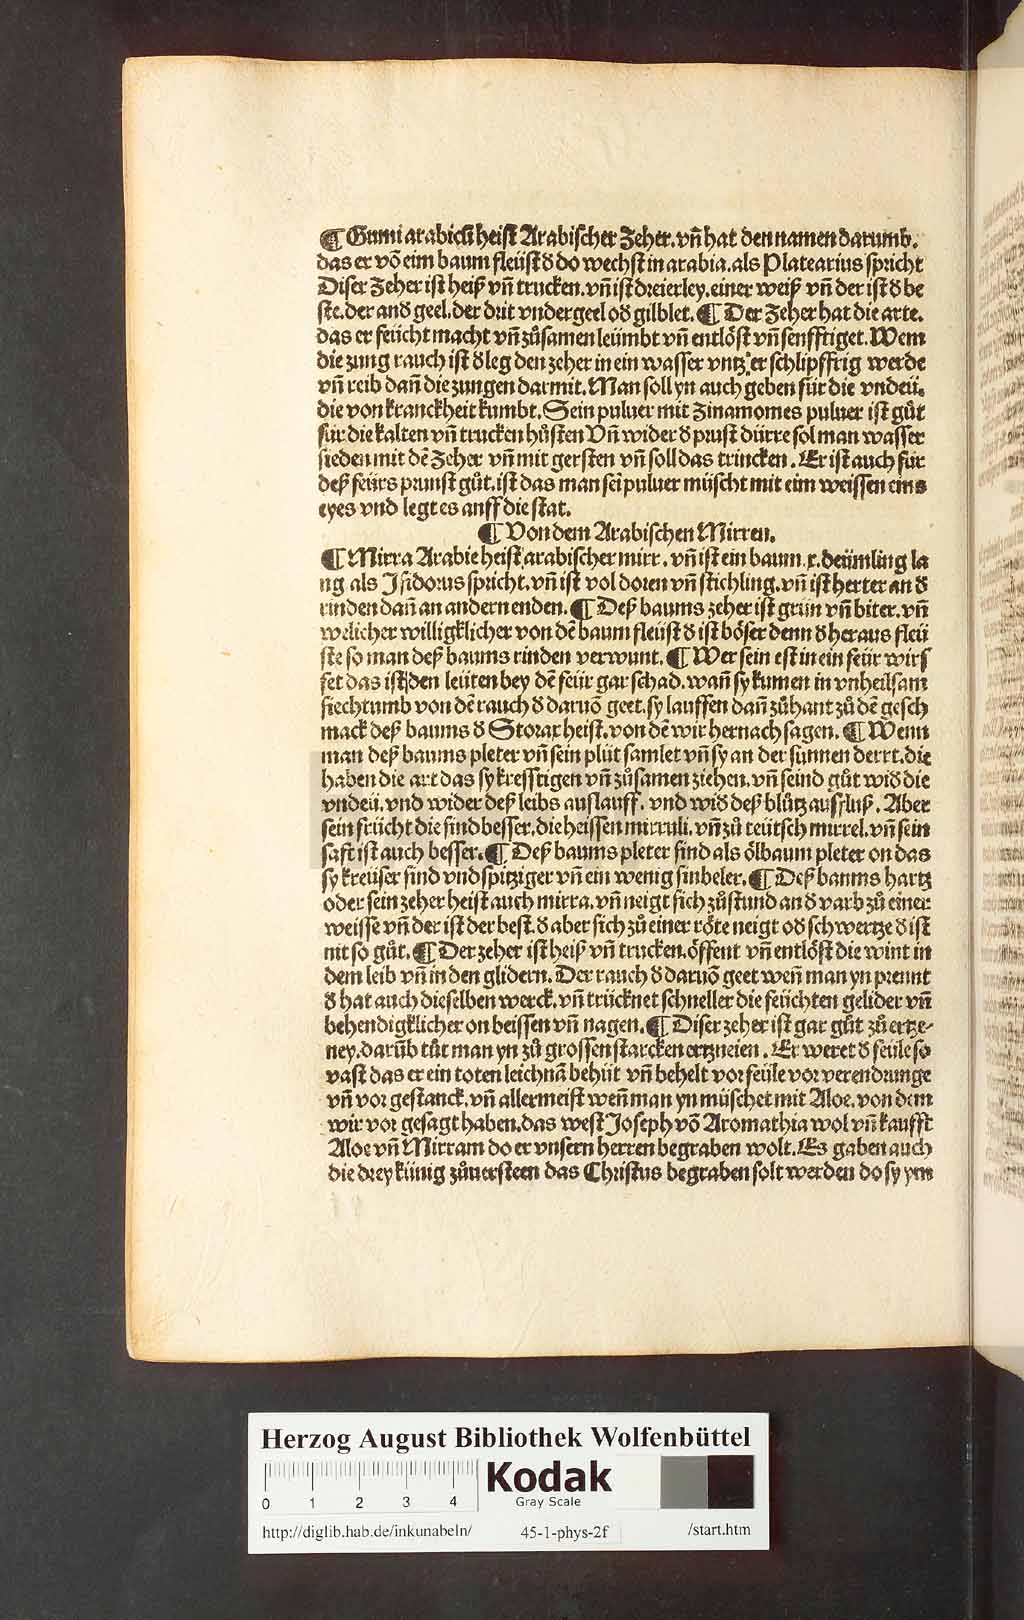 ¶ Gumi arabicū heist Arabischer Zeher. vn̄ hat den namen darumb.
das er vō eim baum fleüst ď do wechst in arabia. als Platearius spricht
Diser Zeher ist heiß vn̄ trucken. vn̄ ist dreierley. einer weiß vn̄ der ist ď be
ste. der anď geel. der drit vndergeel oď gilblet. ¶ Der Zeher hat die arte.
das er feücht macht vn̄ zůsamen leümbt vn̄ entlöst vn̄ senfftiget. Wem
die zung rauch ist ď leg den zeher in ein wasser vntz er schlipffrig werde
vn̄ reib dan̄ die zungen darmit. Man soll yn auch geben für die vndeü.
die von kranckheit kumbt. Sein puluer mit Zinamomes puluer ist gůt
für die kalten vn̄ trucken hůsten Vn̄ wider ď prust dürre sol man wasser
sieden mit dē Zeher vn̄ mit gersten vn̄ soll das trincken. Er ist auch für
deß feürs prunst gůt. ist das man sei puluer müscht mit eim weissen eins
eyes vnd legt es anff die stat.
¶ Von dem Arabischen Mirren.
¶ Mirra Arabie heist arabischer mirr. vn̄ ist ein baum. x. deümling la
ng als Isidorus spricht. vn̄ ist vol doren vn̄ stichling. vn̄ ist herter an ď
rinden dan̄ an andern enden. ¶ Deß baums zeher ist grün vn̄ biter. vn̄
welicher williglicher von dē baum fleüst ď ist böser denn ď heraus fleü
ste so man deß baums rinden verwunt. ¶ Wer sein est in ein feür wirf
fet das ist den leüten bey dē feür gar schad. wan̄ sy kumen in vnheilsam
siechtumb von dē rauch ď daruō geet. sy lauffen dan̄ zůhant zů dē gesch
mack deß baums ď Storax heist. von dē wir hernach sagen. ¶ Wenn
man deß baums pleter vn̄ sein plüt samlet vn̄ sy an der sunnen derrt. die
haben die art das sy krefftigen vn̄ zůsamen ziehen. vn̄ seind gůt wiď die
vndeü. vnd wider deß leibs auslauff. vnd wiď deß blůtz ausfluß. Aber
sein frücht die sind besser. die heissen mirruli. vn̄ zů teütsch mirrel. vn̄ sein
saft ist auch besser. ¶ Deß baums pleter sind als ölbaum pleter on das
sy kreüser sind vnd spitziger vn̄ ein wenig sinbeler. ¶ Deß baums hartz
oder sein zeher heist auch mirra. vn̄ neigt sich zůstund an ď varb zů einer
weisse vn̄ der ist der best. ď aber sich zů einer röte neigt oď schwertze ď ist
nit so gůt. ¶ Der zeher ist heiß vn̄ trucken. öffent vn̄ entlöst die wint in
dem leib vn̄ in den glidern. Der rauch ď daruō geet wen̄ man yn prennt
ď hat auch dieselben werck. vn̄ trücknet schneller die feüchten gelider vn̄
behendigklicher on beissen vn̄ nagen. ¶ Diser zeher ist gar gůt zů ertze-
ney. darūb tůt man yn zů grossen starcken ertzneien. Er weret ď feüle so
vast das er ein toten leichnā behüt vn̄ behelt vor feüle vor verendrunge
vn̄ vor gestanck. vn̄ allermeist wen̄ man yn müschet mit Aloe. von dem
wir vor gesagt haben. das west Joseph vō Aromathia wol vn̄ kaufft
Aloe vn̄ Mirram do er vnsern herren begraben wolt. Es gaben auch
die drey künig zůuersteen das Christus begraben solt werden do sy ym
Herzog August Bibliothek Wolfenbüttel
0 1 2 3 4
Kodak
Gray Scale
http://diglib.hab.de/inkunabeln/ 45-1-phys-2f /start.htm